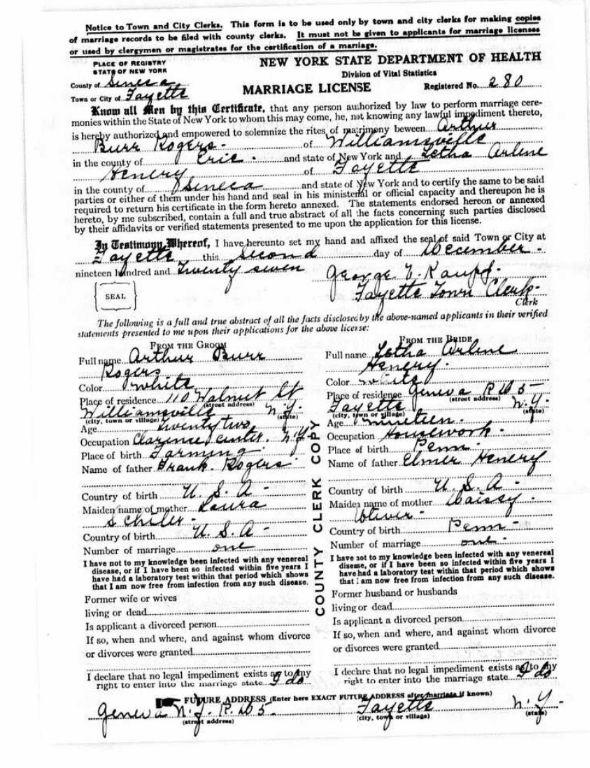 Notice to Town and City Clerks. This form is to be used only by town and city clerks for making copies
of marriage records to be filed with county clerks. It must not be given to applicants for marriage licenses
or used by clergymen or magistrates for the certification of a marriage.
PLACE OF REGISTRY
STATE OF NEW YORK
NEW YORK STATE DEPARTMENT OF HEALTH
Division of Vital Statistics
County of Seneca
Town or City of Fayette
MARRIAGE LICENSE
Registered No. 280
Know all Men by this Certificate, that any person authorized by law to perform marriage cere-
monies within the State of New York to whom this may come, he, not knowing any lawful impediment thereto,
is hereby authorized and empowered to solemnize the rites of matrimony beween Arthur
Burr Rogers of Williamsville
in the county of Erie and state of New York and Letha Arlene
Henery of Fayette
in the county of Seneca and state of New York and to certify the same to be said
parties or either of them under his hand and seal in his ministerial or official capacity and thereupon he is
required to return his certificate in the form hereto annexed. The statements endorsed hereon or annexed
hereto, by me subscribed, contain a full and true abstract of all the facts concerning such parties disclosed
by their affidavits or verified statements presented to me upon the application for this license.
In Testimony Whereof, I have hereunto set my hand and affixed the seal of said Town or City at
Fayette this second day of December
nineteen hundred and Twenty seven
George
Fayette Town Clerk
Clerk
SEAL
The following is a full and true abstract of all the facts disclosed by the above-named applicants in their verified
statements presented to me upon their applications for the above license:
FROM THE GROOM
Full name Arthur Burr
Rogers
Color white
Place of residence 110 Walnut St
(street address)
Williamsville N.Y
(city, town or village) (state)
Age twenty two
Occupation Clarence Center. N.Y
Place of birth Farming
Name of father Frank Rogers
Country of birth U.S.A
Maiden name of mother Laura
Country of birth U.S.A
Number of marriage one
I have not to my knowledge been infected with any venereal
disease, or if I have been so infected within five years I
have had a laboratory test within that period which shows
that I am now free from infection from any such disease.
Former wife or wives
living or dead
Is applicant a divorced person
If so, when and where, and against whom divorce
or divorces were granted
I declare that no legal impediment exists as to my
right to enter into the marriage state I do
COUNTY CLERK COPY
FROM THE BRIDE
Full name Letha Arlene
Henery
Color white
Place of residence Geneva R D 5
(street address)
Fayette N.Y.
(city, town or village) (state)
Age nineteen
Occupation Housework
Place of birth Penn
Name of father Elmer Henery
Country of birth U.S.A
Maiden name of mother Daisy
Oliver
Country of birth Penn
Number of marriage one
I have not to my knowledge been infected with any venereal
disease, or if I have been so infected within five years I
have had a laboratory test within that period which shows
that I am now free from infection from any such disease.
Former husband or husbands
living or dead
Is applicant a divorced person
If so, when and where, and against whom divorce
or divorces were granted
I declare that no legal impediment exists as to my
right to enter into the marriage state I do
FUTURE ADDRESS (Enter here EXACT FUTURE ADDRESS after marriage if known)
Geneva N.Y. R D 5 Fayette N.Y
(street address) (city, town or village) (state)